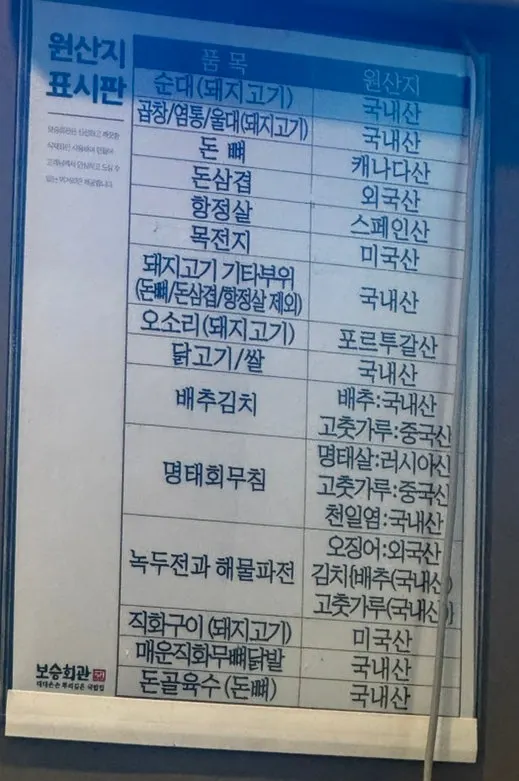 원산지
표시판
품 목 원산지
순대(돼지고기) 국내산
곱창/염통/울대(돼지고기) 국내산
돈 뼈 캐나다산
돈삼겹 외국산
항정살 스페인산
목전지 미국산
돼지고기 기타부위
(돈뼈/돈삼겹/항정살 제외) 국내산
오소리(돼지고기) 포르투갈산
닭고기/쌀 국내산
배추김치 배추:국내산
고춧가루:중국산
명태회무침 명태살:러시아산
고춧가루:중국산
천일염:국내산
녹두전과 해물파전 오징어:외국산
김치{배추(국내산)
고춧가루(국내산)}
직화구이(돼지고기) 미국산
매운직화무뼈닭발 국내산
돈골육수(돈뼈) 국내산
보승회관
대를이은 뿌리깊은 국밥집